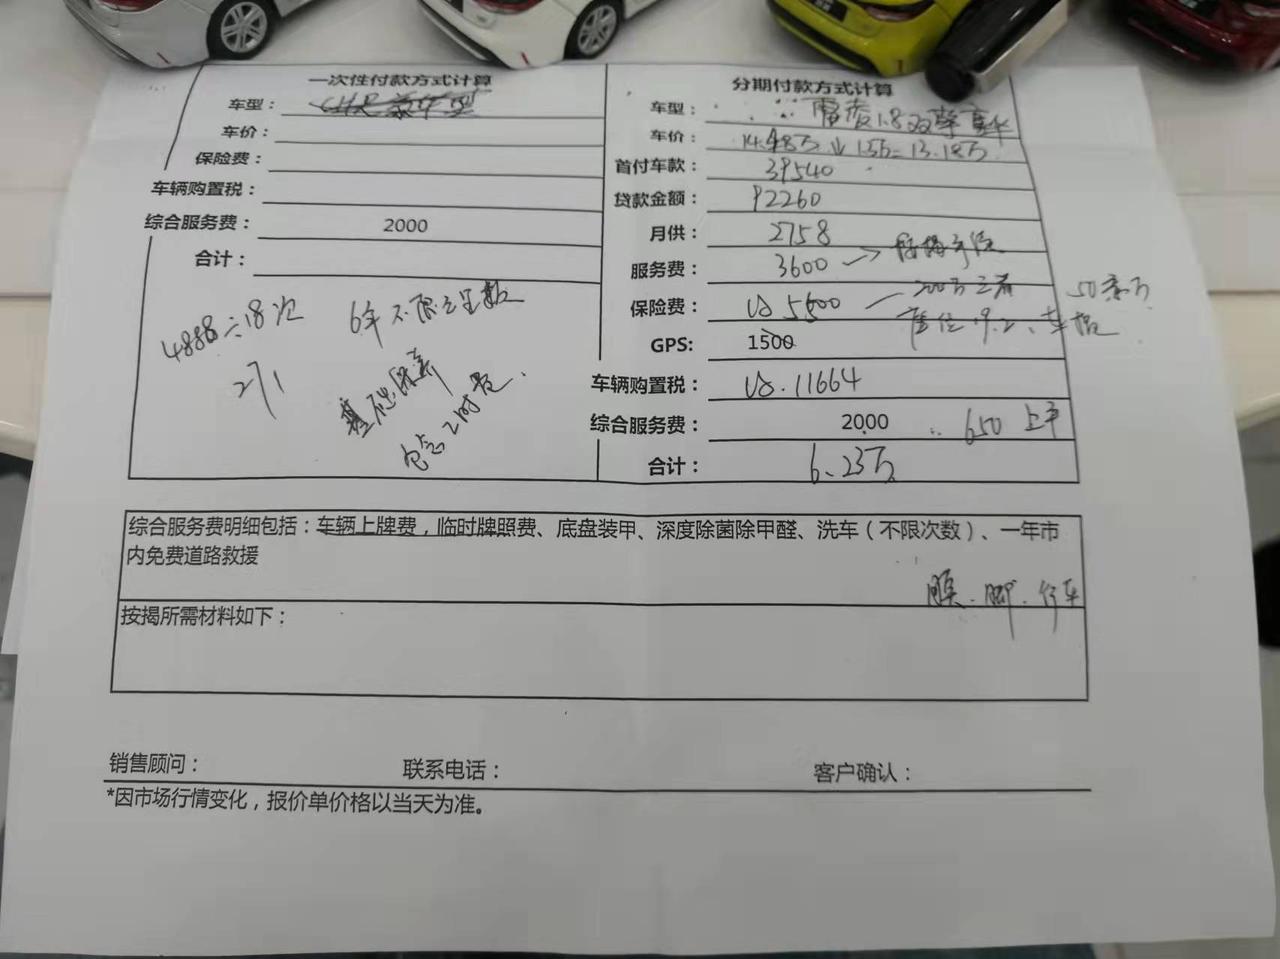 一次性付款方式计算
车型：
车价：
保险费：
车辆购置税：
综合服务费： 2000
合计：
4888÷18次
271
6年不限公里数
基础保养
包含工时费.
分期付款方式计算
车型： 雷凌1.8双擎豪华
车价： 14.48万↓ 13.18万
首付车款： 39540
贷款金额： 92260
月供： 2758
服务费： 3600 → 按揭手续
保险费： 5500 — 200万三者 50万
座位
GPS: 1500
车辆购置税： 11664
综合服务费： 2000 650 上户
合计： 6.23万
综合服务费明细包括：车辆上牌费，临时牌照费、底盘装甲、深度除菌除甲醛、洗车（不限次数）、一年市
内免费道路救援
膜.脚.行车
按揭所需材料如下：
销售顾问： 联系电话： 客户确认：
*因市场行情变化，报价单价格以当天为准。